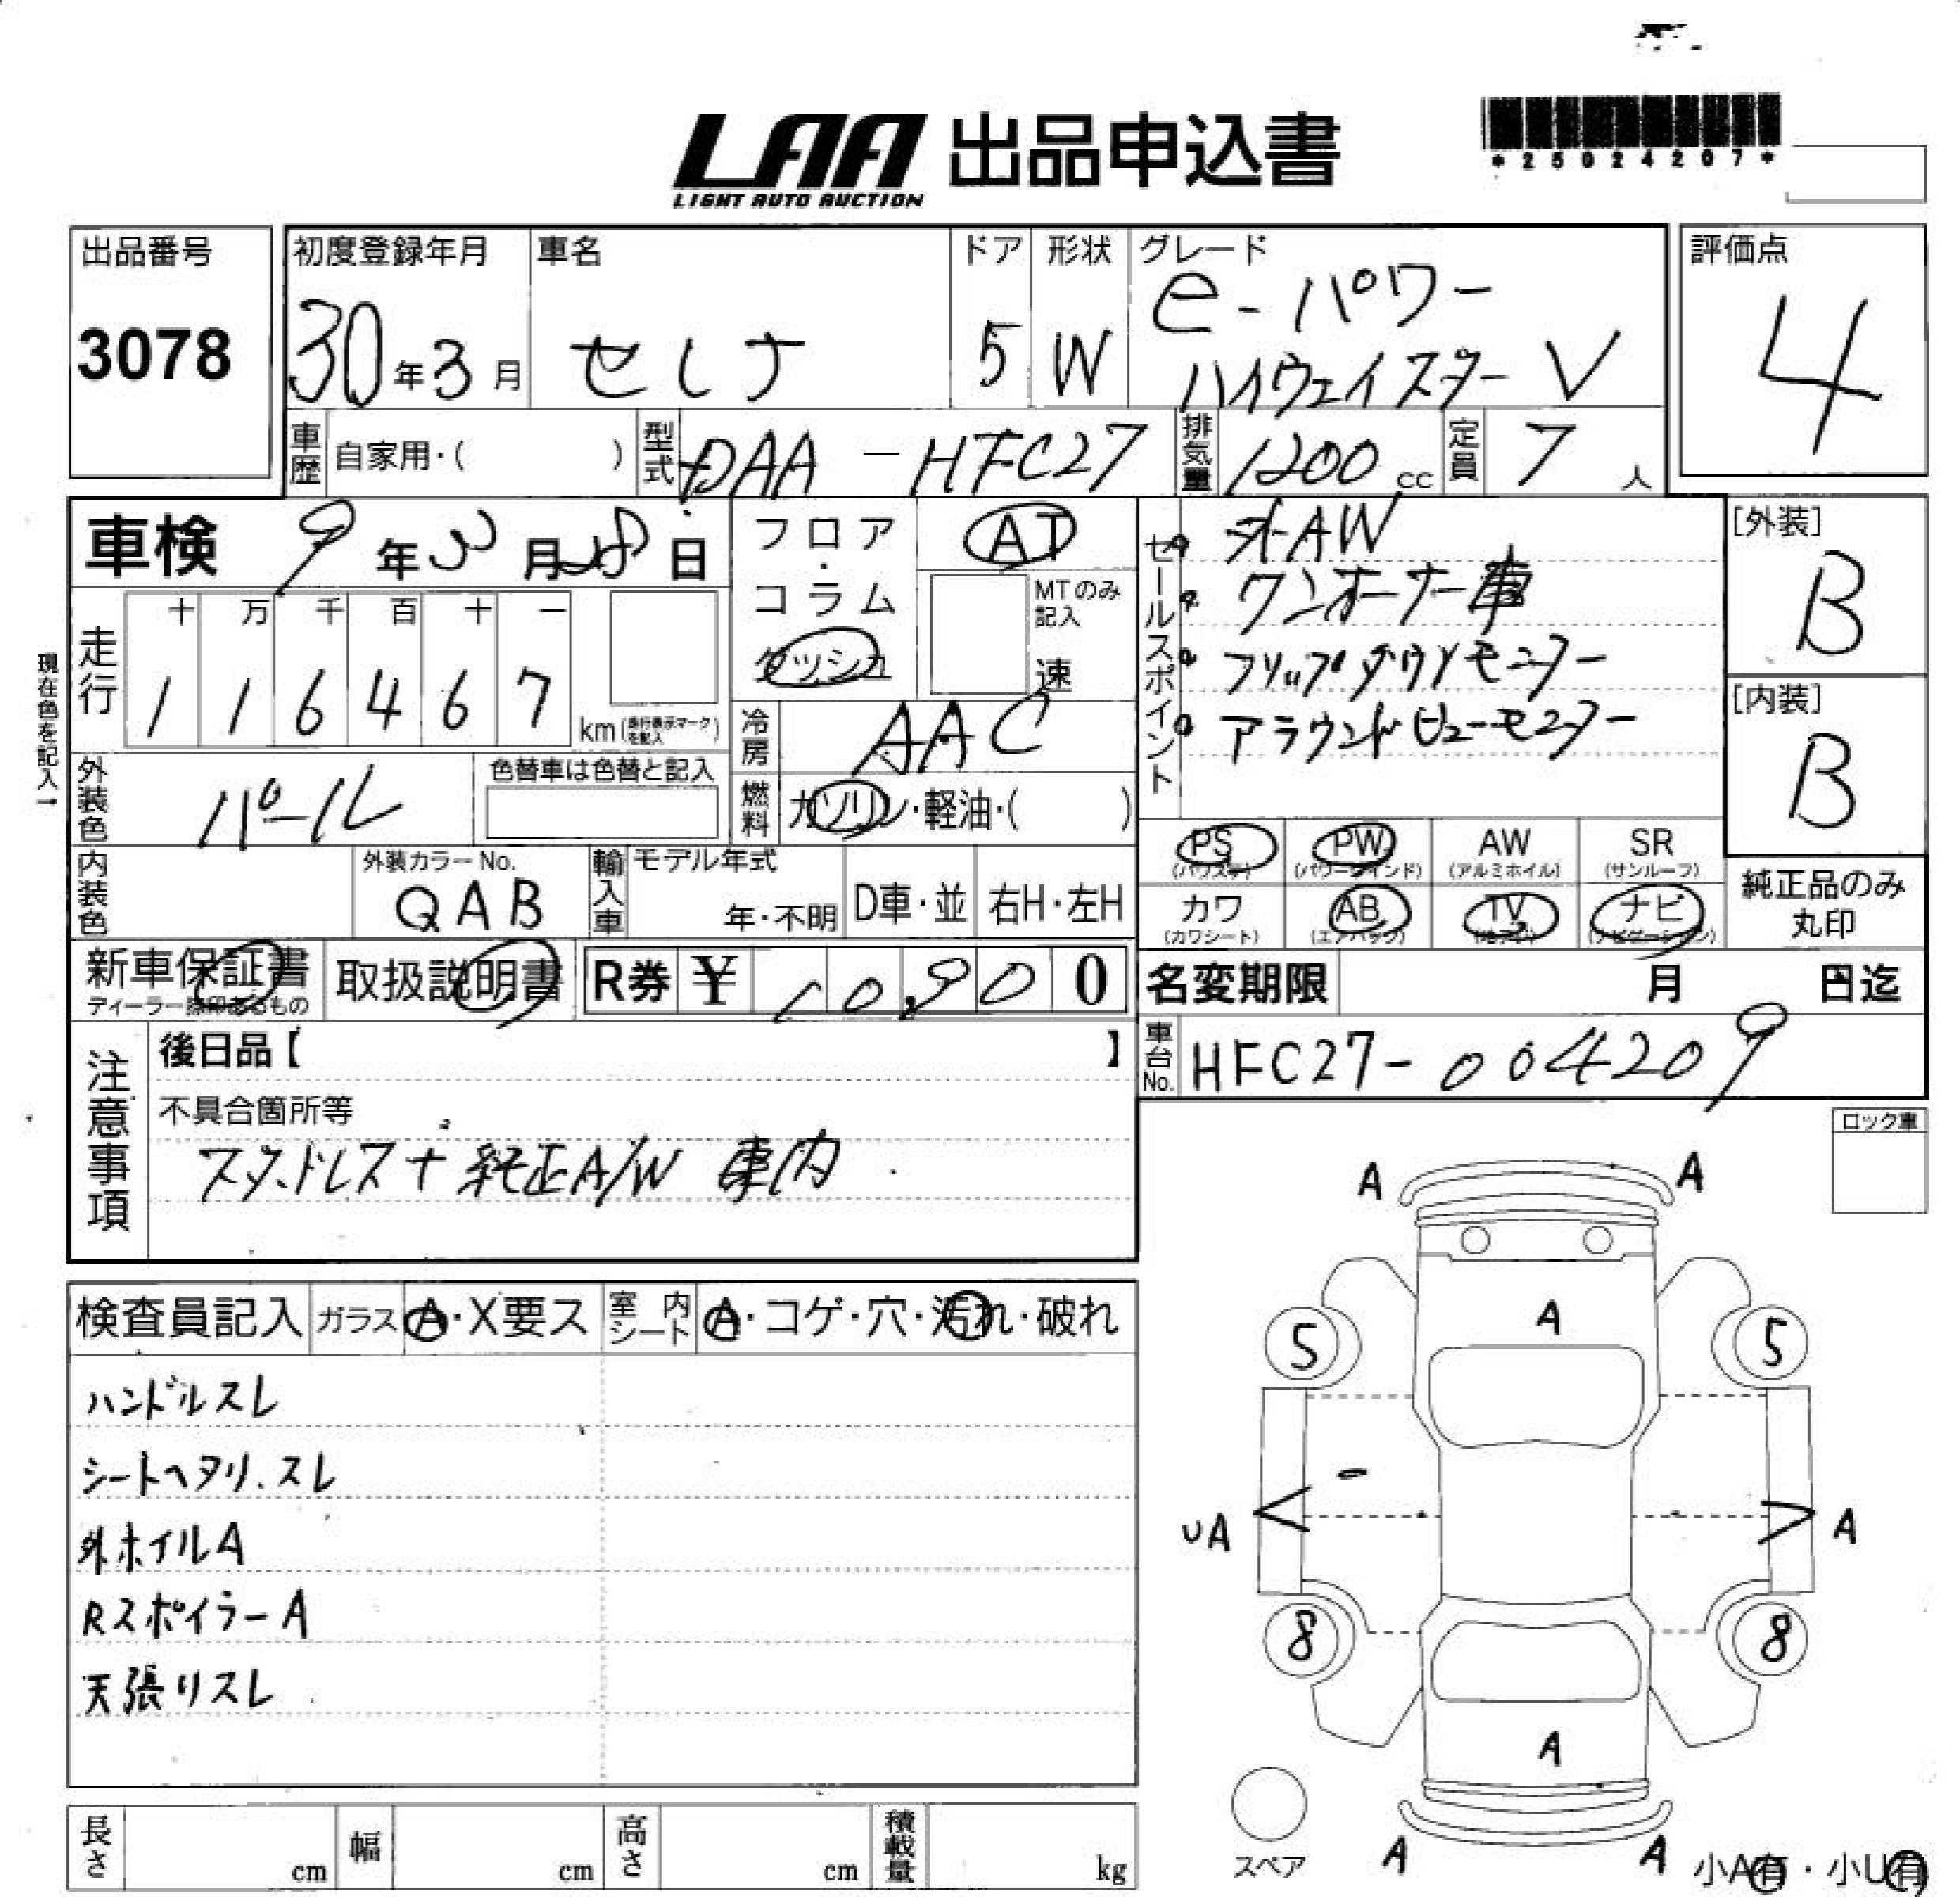 LAA 出品申込書
LIGHT AUTO AUCTION
*25024207*
出品番号
3078
初度登録年月
30年3月
車名
セレナ
ドア
5
形状
W
グレード
e-パワー
ハイウェイスター V
評価点
4
車歴 自家用・( )
型式 DAA-HFC27
排気量 1200 cc
定員 7 人
車検 9年3月28日
フロア・コラム
ダッシュ
AT
MTのみ記入
速
セールスポイント
外AW
ワンオーナー車
フリップダウンモニター
アラウンドビューモニター
[外装]
B
[内装]
B
現在色を記入→
走行
十 万 千 百 十 一
1 1 6 4 6 7
km(走行表示マークを記入)
冷房 AAC
燃料 ガソリン・軽油・( )
外装色 パール
色替車は色替と記入
内装色
外装カラーNo.
QAB
輸入車
モデル年式
年・不明
D車・並
右H・左H
PS (パワステ)
PW (パワーウインド)
AW (アルミホイル)
SR (サンルーフ)
カワ (カワシート)
AB (エアバック)
TV
ナビ (ナビゲーション)
純正品のみ
丸印
新車保証書
取扱説明書
R券 ¥ 10,900
名変期限 月 日迄
車台No. HFC27-004209
注意事項
後日品【 】
不具合箇所等
スタッドレス+純正A/W 車内
ロック車
検査員記入
ガラス A・X要ス
室内シート A・コゲ・穴・汚れ・破れ
ハンドルスレ
シートヘタリ.スレ
外ホイルA
RスポイラーA
天張リスレ
A A
A
5 5
UA A
8 8
A
A A
スペア
小A有・小U有
長さ cm
幅 cm
高さ cm
積載量 kg